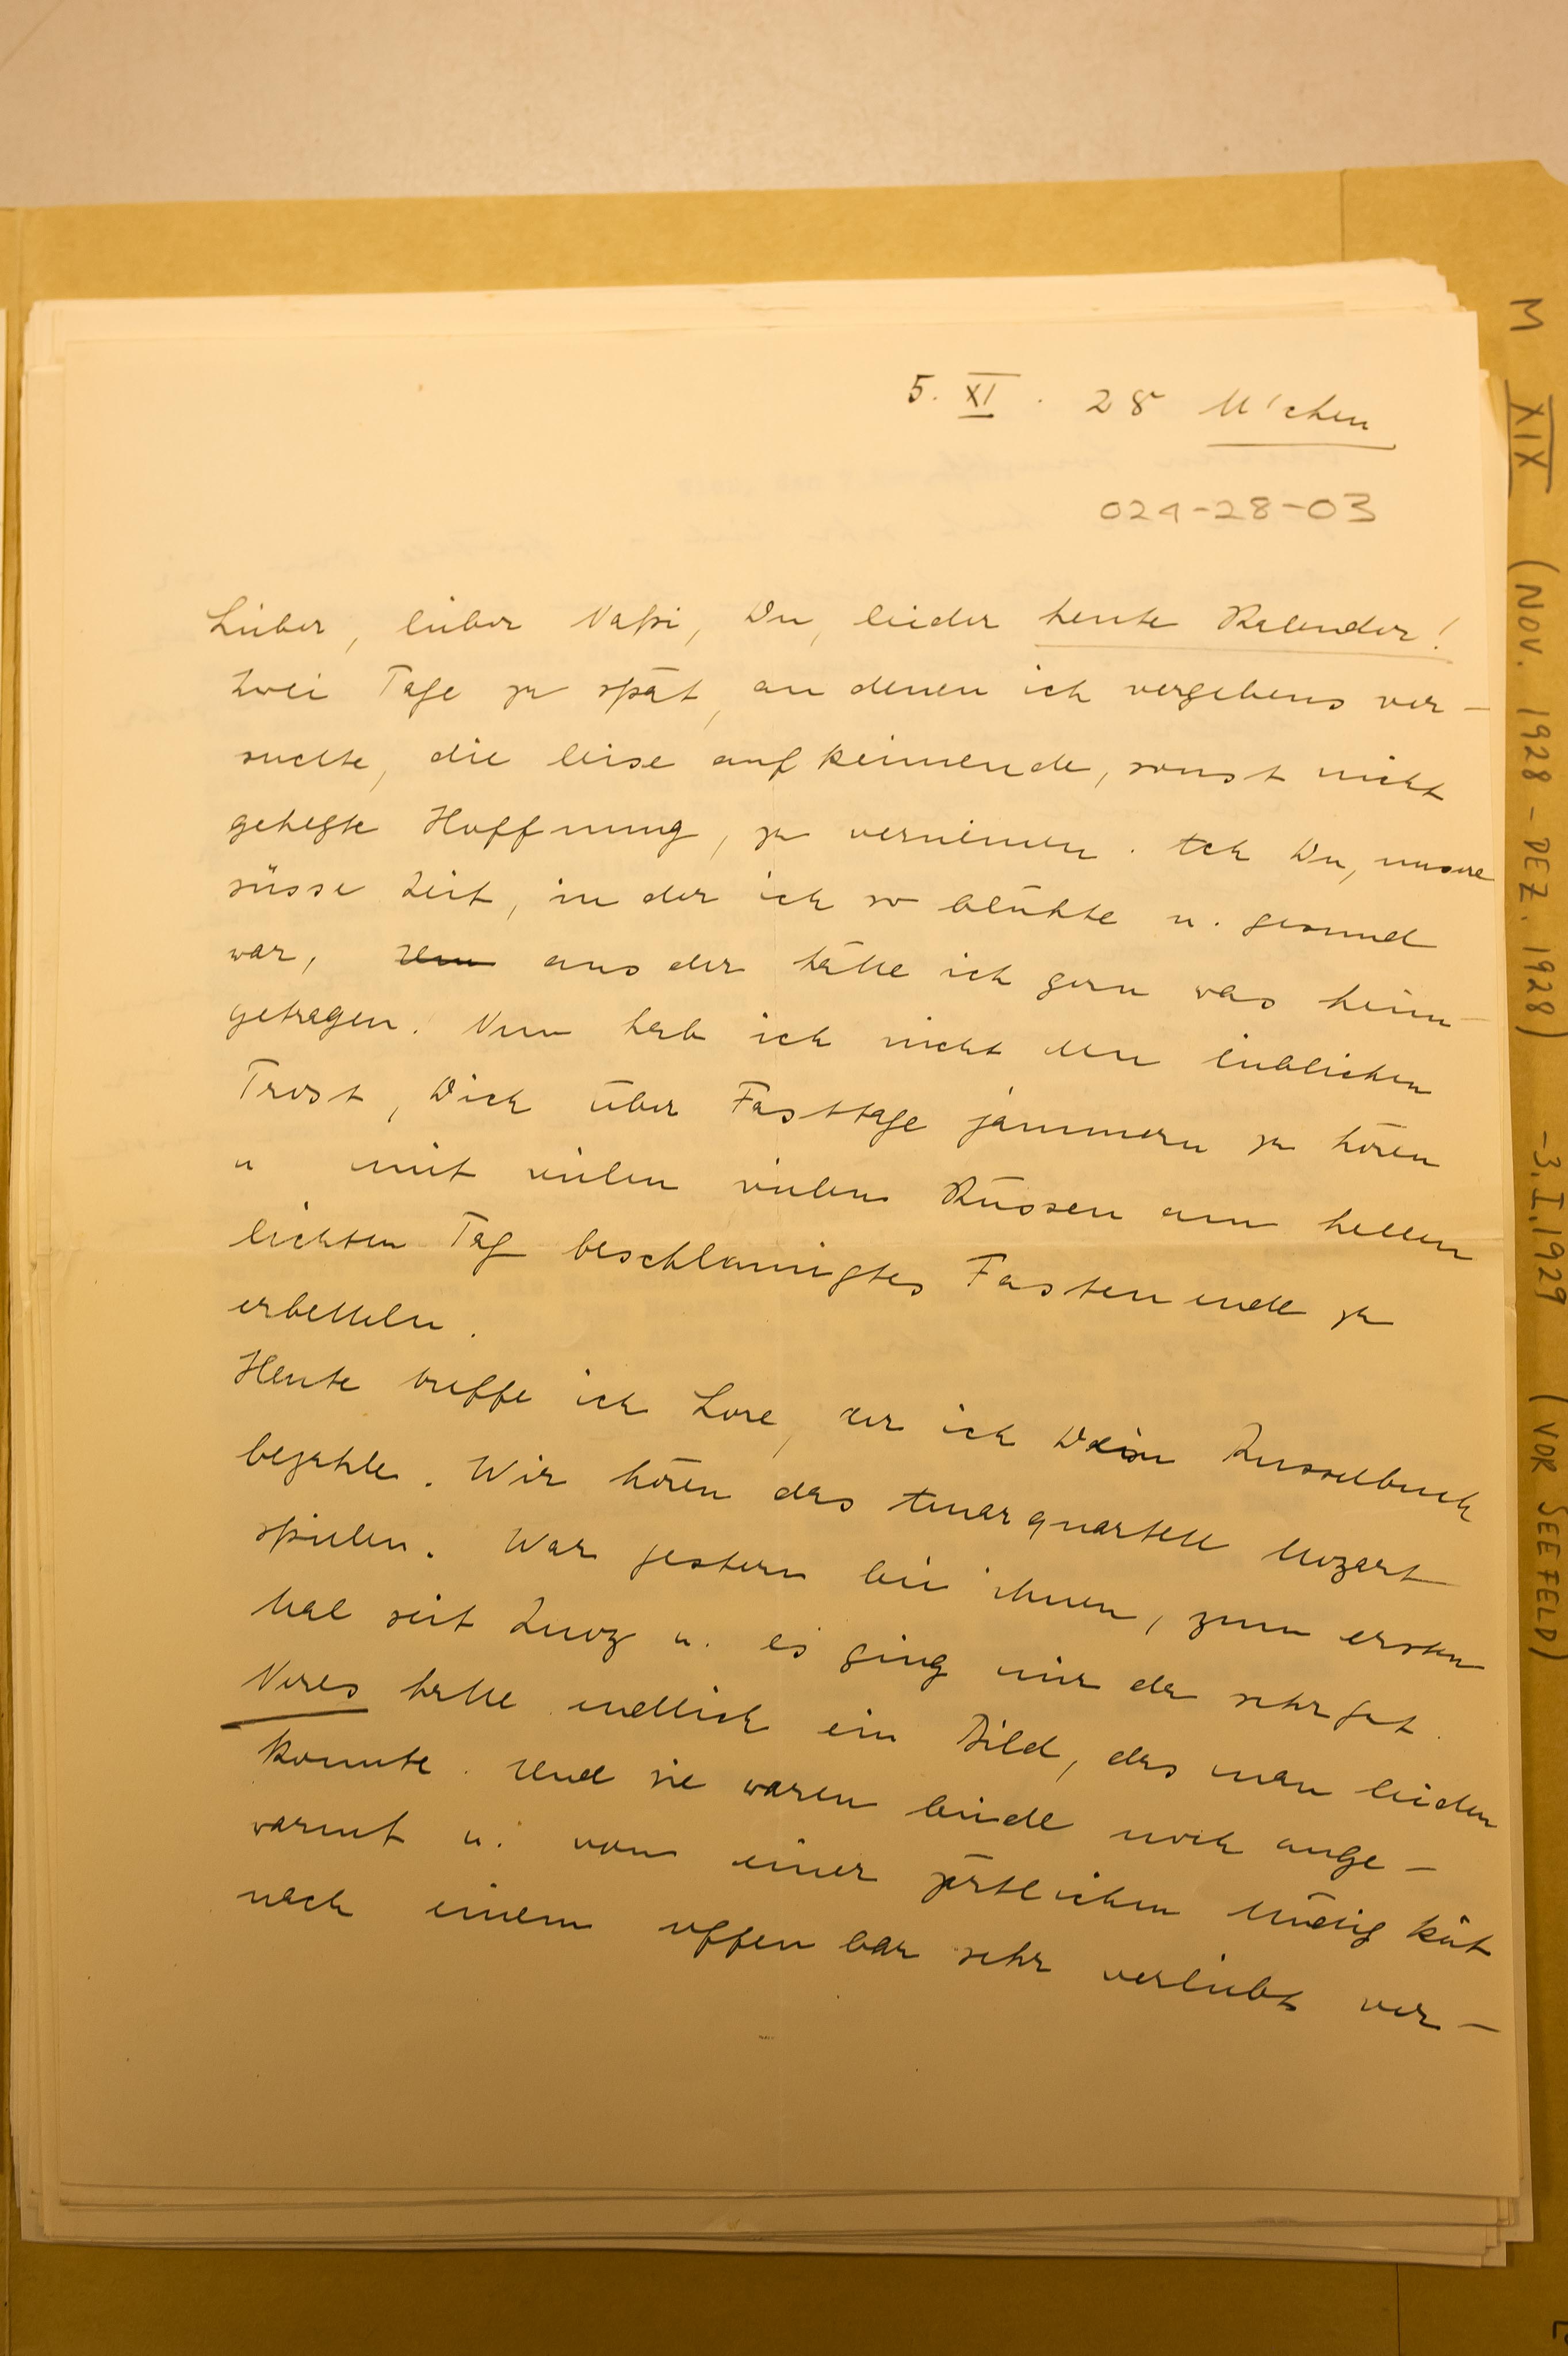 5. XI. 28 M'chen
024-28-03
Lieber, lieber Napi, Du, leider heute Kalender!
Zwei Tage zu spät, an denen ich vergebens ver-
suchte, die leise aufkeimende, sonst nicht
gehegte Hoffnung, zu verneinen. Ach Du, unsere
süsse Zeit, in der ich so blühte u. gesund
war, aus der hätte ich gern was heim-
getragen! Nun hab ich nicht den lieblichen
Trost, Dich über Fasttage jammern zu hören
u mit vielen vielen Küssen am hellen
lichten Tag beschleunigtes Fastenende zu
erbetteln.
Heute treffe ich Lore, der ich Dein Zusselbuch
bezahle. Wir hören das Amarquartett Mozart
spielen. War gestern bei ihnen, zum ersten
Mal seit Zuoz u. es ging mir da sehr gut.
Veres hatte endlich ein Bild, das man leiden
konnte. Und sie waren beide noch ange-
warmt u. von einer zärtlichen Müdigkeit
nach einem offenbar sehr verliebt ver-
M XIX (NOV. 1928 - DEZ. 1928) -3.I.1929 (VOR SEEFELD)